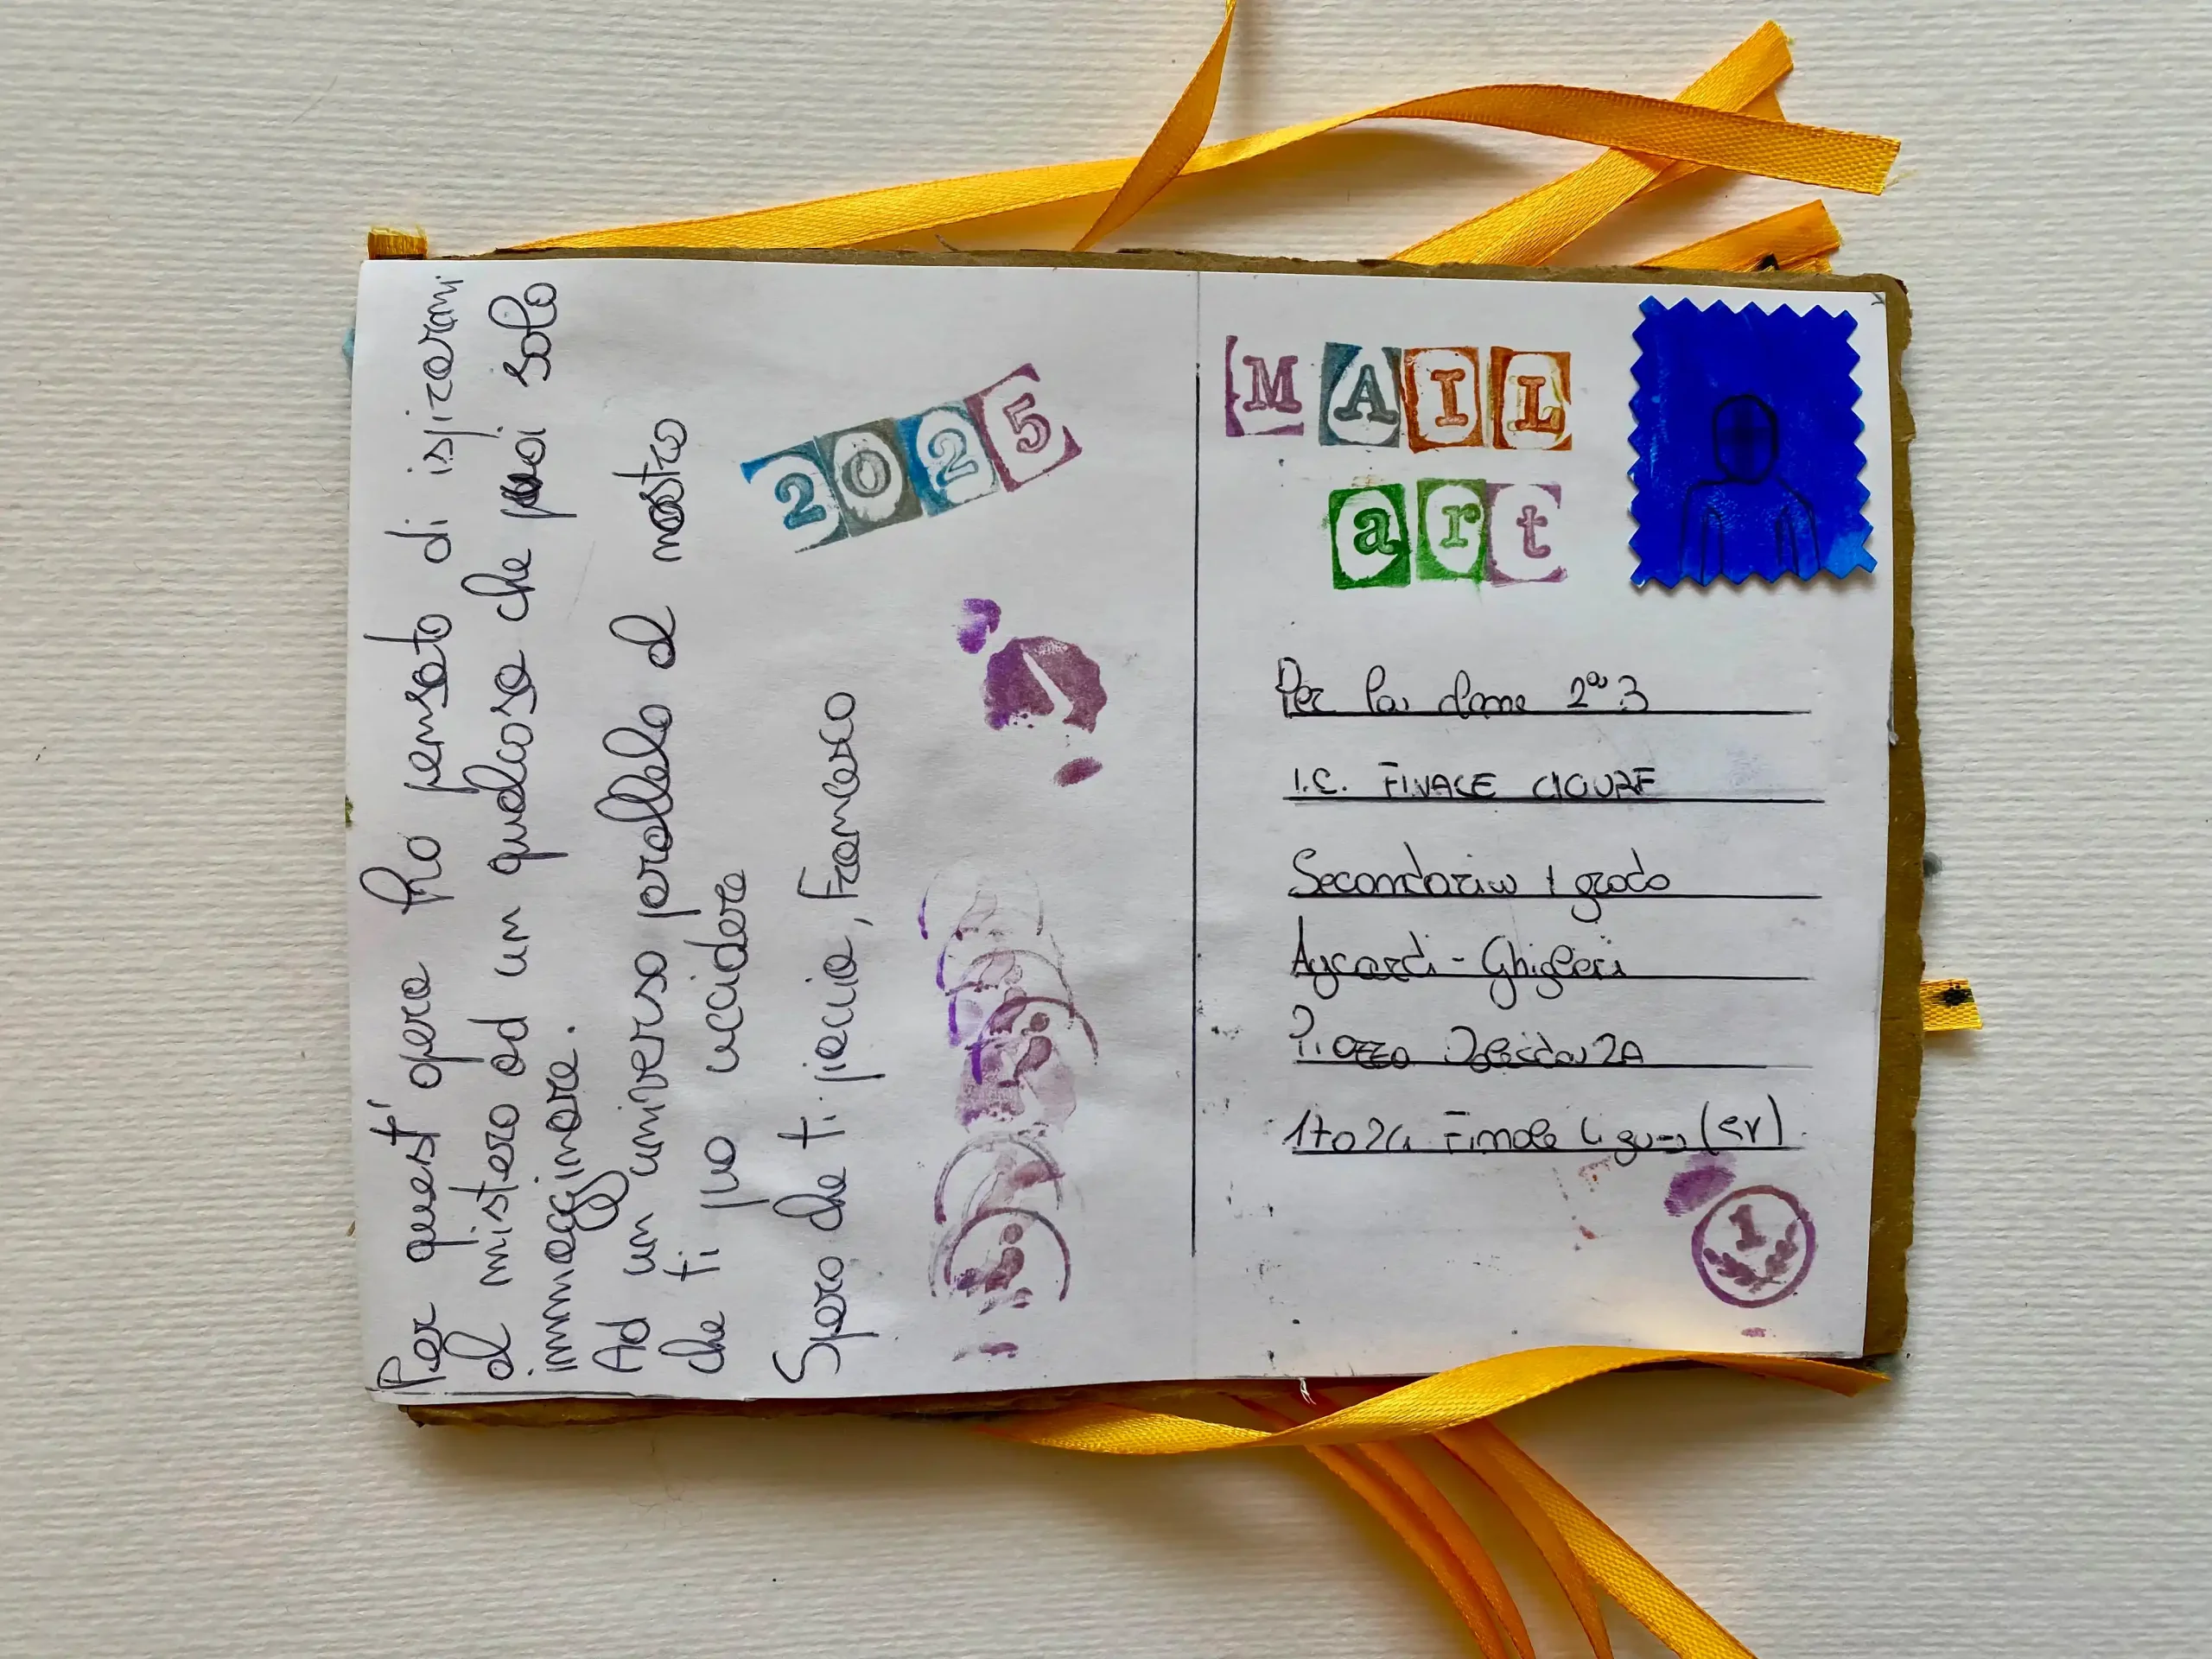 Per quest' opera ho pensato di ispirarmi
al mistero ad un qualcosa che puoi solo
immagginare.
Ad un universo parallelo al nostro
che ti può uccidere
Spero che ti piaccia, Francesco
2025
MAIL
art
Per la classe 2ª 3
I.C. FINALE LIGURE
Secondaria 1 grado
Aycardi - Ghiglieri
Piazza 2A
17024 Finale Ligure (SV)
1